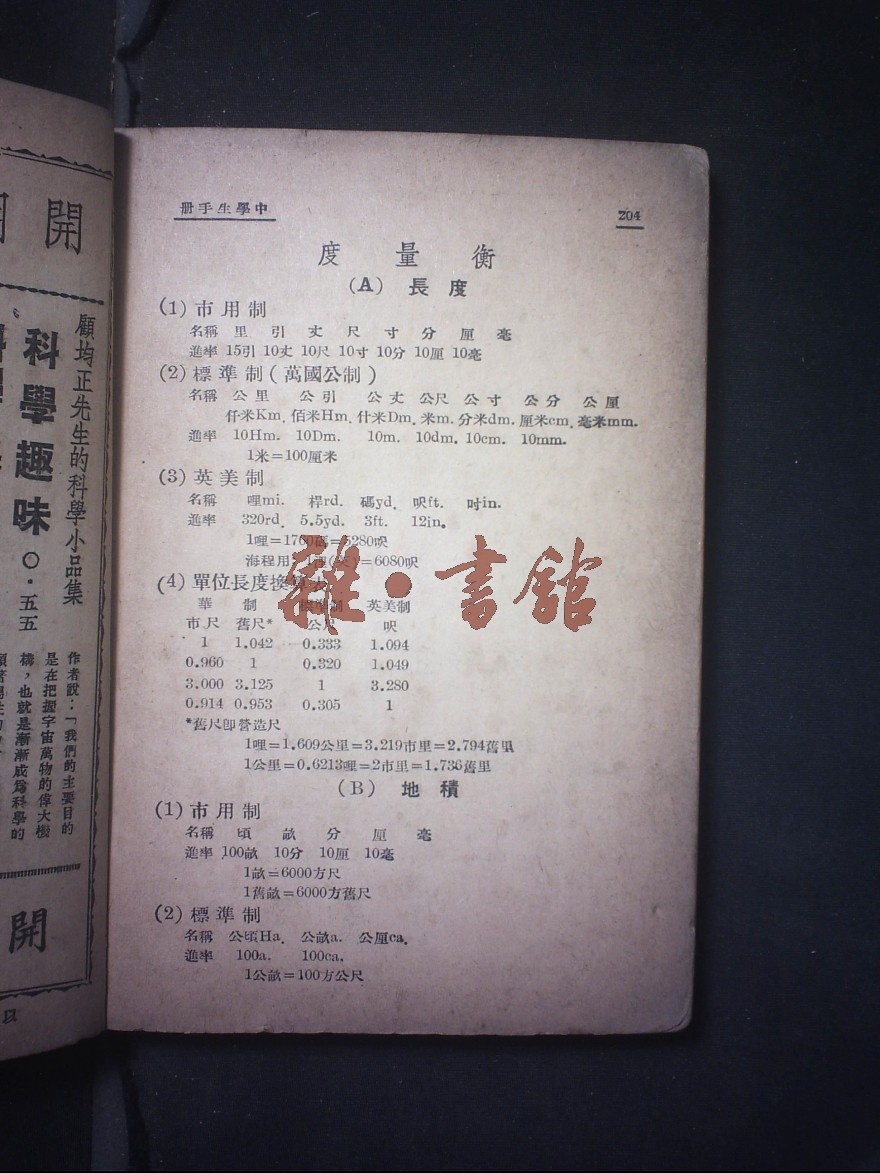 中學生手册
204
度量衡
(A) 長度
(1) 市用制
名稱 里 引 丈 尺 寸 分 厘 毫
進率 15引 10丈 10尺 10寸 10分 10厘 10毫
(2) 標準制(萬國公制)
名稱 公里 公引 公丈 公尺 公寸 公分 公厘
仟米Km. 佰米Hm. 什米Dm. 米m. 分米dm. 厘米cm. 毫米mm.
進率 10Hm. 10Dm. 10m. 10dm. 10cm. 10mm.
1米=100厘米
(3) 英美制
名稱 哩mi. 桿rd. 碼yd. 呎ft. 吋in.
進率 320rd. 5.5yd. 3ft. 12in.
1哩=1760碼=5280呎
海程用 1浬(英)=6080呎
(4) 單位長度換算表
華制 標準制 英美制
市尺 舊尺* 公尺 呎
1 1.042 0.333 1.094
0.960 1 0.320 1.049
3.000 3.125 1 3.280
0.914 0.953 0.305 1
*舊尺卽營造尺
1哩=1.609公里=3.219市里=2.794舊里
1公里=0.6213哩=2市里=1.736舊里
(B) 地積
(1) 市用制
名稱 頃 畝 分 厘 毫
進率 100畝 10分 10厘 10毫
1畝=6000方尺
1舊畝=6000方舊尺
(2) 標準制
名稱 公頃Ha. 公畝a. 公厘ca.
進率 100a. 100ca.
1公畝=100方公尺
雜·書館
開
顧均正先生的科學小品集
科學趣味
〇·五五
作者說:「我們的主要目的
是在把握宇宙萬物的偉大機
構,也就是漸漸成爲科學的
開
以